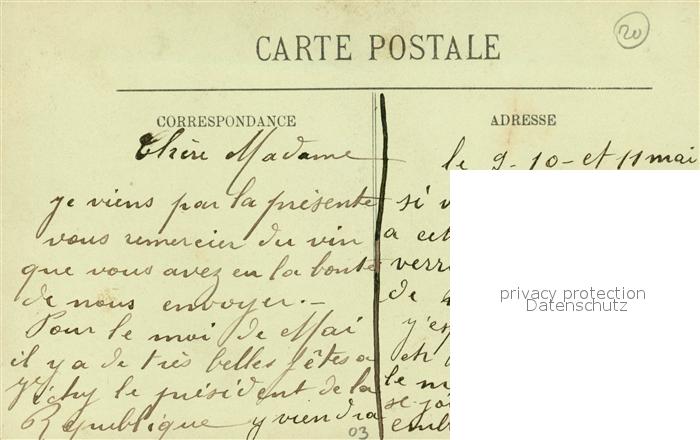 20
CARTE POSTALE
CORRESPONDANCE
Chère Madame
je viens par la présente
vous remercier du vin
que vous avez eu la bonté
de nous envoyer. –
Pour le moi de Mai
il y a de très belles fêtes a
Vichy le président de la
République y viendra
03
ADRESSE
le 9 - 10 - et 11 mai
si v
a cet
verr
de
y'es
et
le m
se jo
emb
privacy protection
Datenschutz